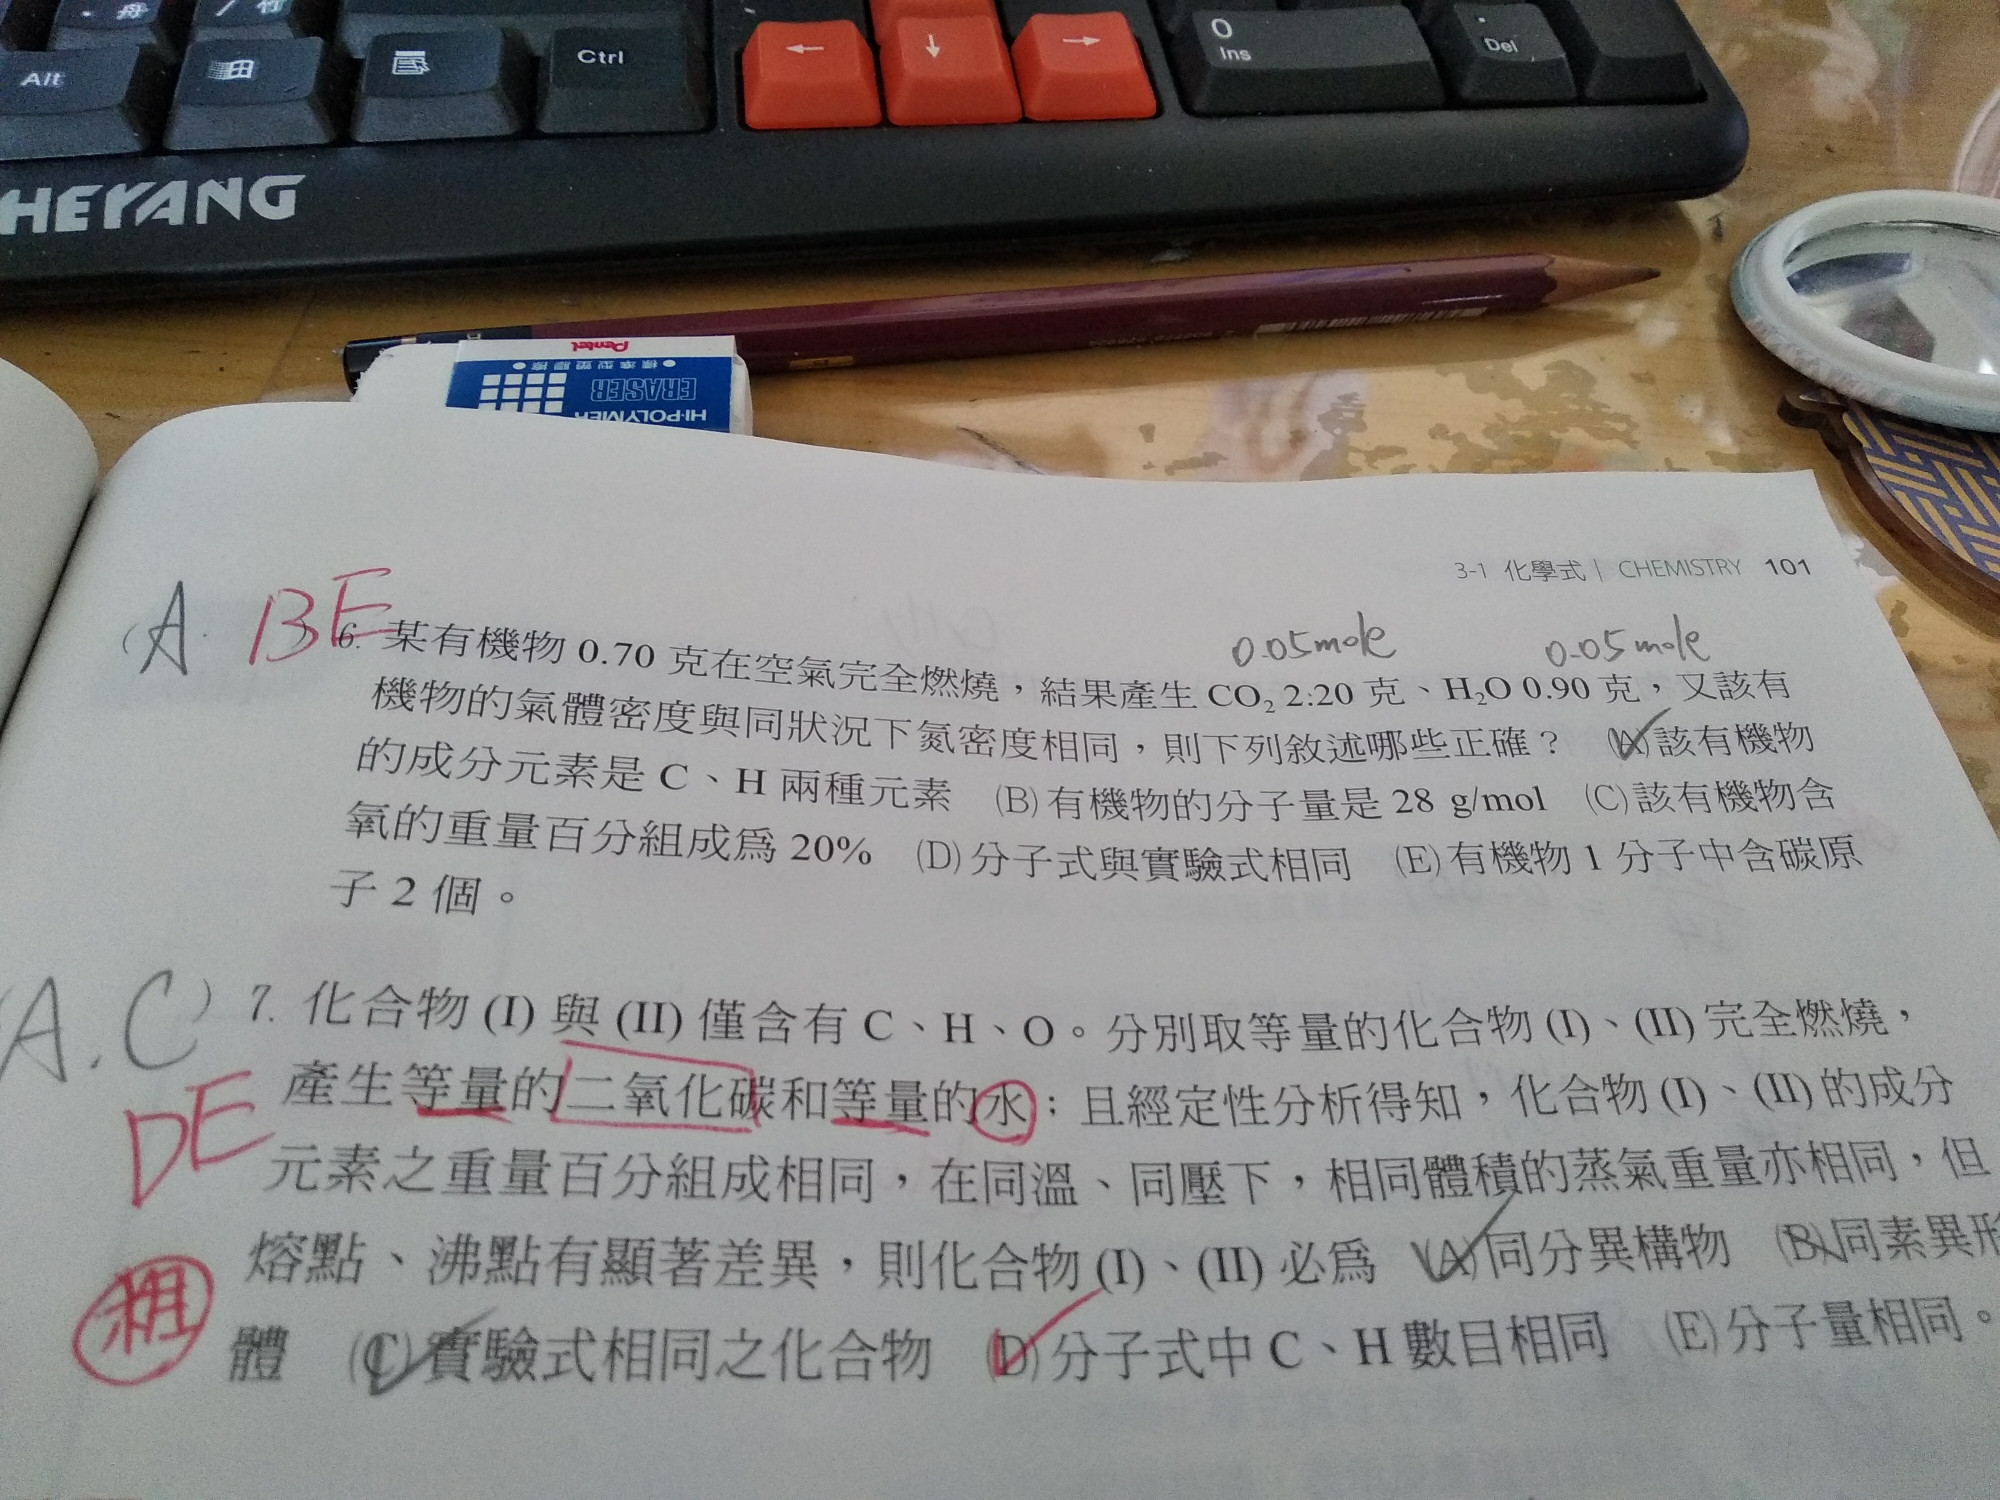 舟
竹
Alt
Ctrl
0
Ins
Del
HEYANG
Pentel
標準型塑膠擦
ERASER
HI-POLYMER
3-1 化學式 | CHEMISTRY 101
0.05mole 0.05mole
(A. BE 6. 某有機物 0.70 克在空氣完全燃燒，結果產生 CO₂ 2:20 克、H₂O 0.90 克，又該有
機物的氣體密度與同狀況下氮密度相同，則下列敘述哪些正確？ (A)該有機物
的成分元素是 C、H 兩種元素 (B)有機物的分子量是 28 g/mol (C)該有機物含
氧的重量百分組成為 20% (D)分子式與實驗式相同 (E)有機物 1 分子中含碳原
子 2 個。
(A.C) 7. 化合物 (I) 與 (II) 僅含有 C、H、O。分別取等量的化合物 (I)、(II) 完全燃燒，
產生等量的二氧化碳和等量的水；且經定性分析得知，化合物 (I)、(II) 的成分
DE
元素之重量百分組成相同，在同溫、同壓下，相同體積的蒸氣重量亦相同，但
熔點、沸點有顯著差異，則化合物 (I)、(II) 必為 (A)同分異構物 (B)同素異形
粗
體 (C)實驗式相同之化合物 (D)分子式中 C、H 數目相同 (E)分子量相同。